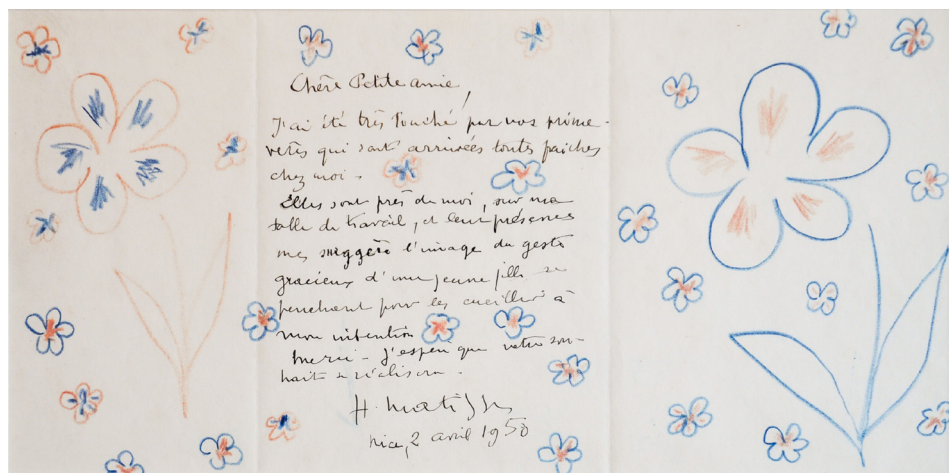 Chère Petite amie,
J'ai été très touché par vos prime-
vères qui sont arrivées toutes fraîches
chez moi.
Elles sont près de moi, sur ma
table de travail, et leur présence
me suggère l'image du geste
gracieux d'une jeune fille se
penchant pour les cueillir à
mon intention
Merci - J'espère que votre sou-
hait se réalisera.
H. Matisse
Nice, 2 avril 1950